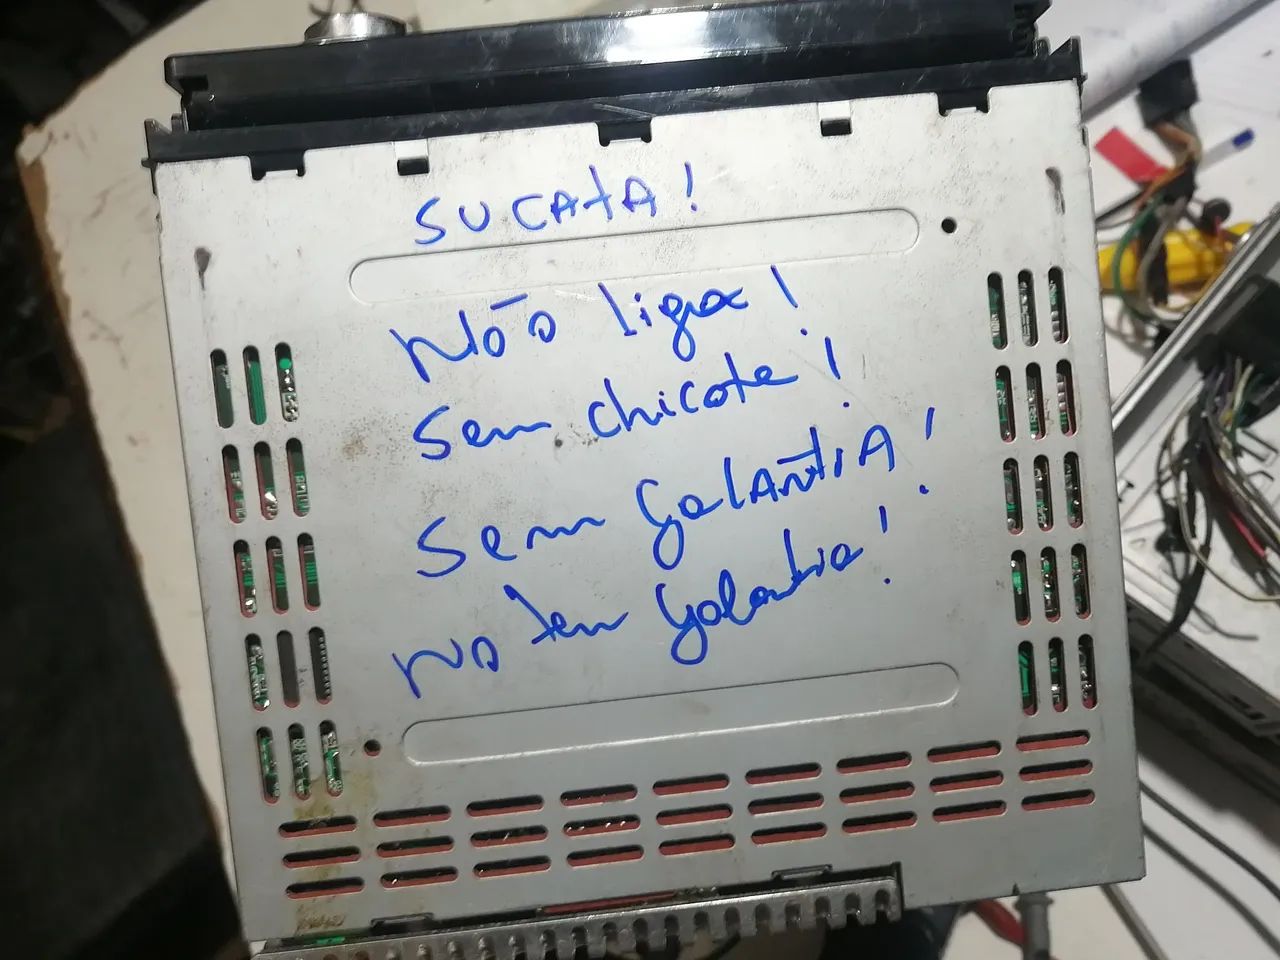 SUCAtA!
Não liga!
Sem chicote!
Sem GalANtiA!
No tem Galantia!